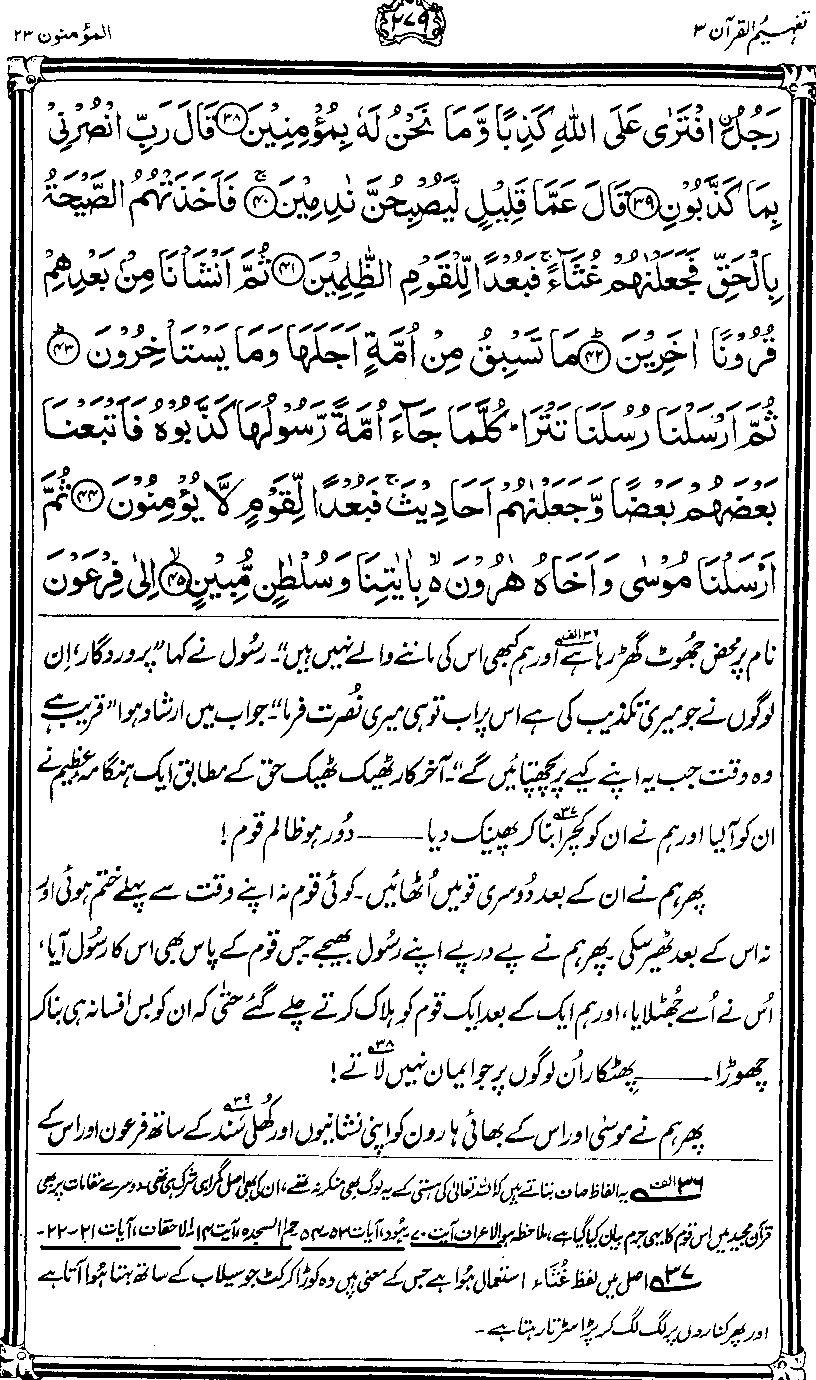 تفہیم القرآن ۳
۲۷۹
المؤمنون ۲۳
رَجُلُ ۨافْتَرٰى عَلَى اللّٰهِ كَذِبًا وَّمَا نَحْنُ لَهٗ بِمُؤْمِنِيْنَ ۳۸ قَالَ رَبِّ انْصُرْنِيْ
بِمَا كَذَّبُوْنِ ۳۹ قَالَ عَمَّا قَلِيْلٍ لَّيُصْبِحُنَّ نٰدِمِيْنَ ۴۰ۚ فَاَخَذَتْهُمُ الصَّيْحَةُ
بِالْحَقِّ فَجَعَلْنٰهُمْ غُثَآءً ۚ فَبُعْدًا لِّلْقَوْمِ الظّٰلِمِيْنَ ۴۱ ثُمَّ اَنْشَاْنَا مِنْۢ بَعْدِهِمْ
قُرُوْنًا اٰخَرِيْنَ ۴۲ؕ مَا تَسْبِقُ مِنْ اُمَّةٍ اَجَلَهَا وَمَا يَسْتَاْخِرُوْنَ ۴۳ؕ
ثُمَّ اَرْسَلْنَا رُسُلَنَا تَتْرَا ؕ كُلَّمَا جَآءَ اُمَّةً رَّسُوْلُهَا كَذَّبُوْهُ فَاَتْبَعْنَا
بَعْضَهُمْ بَعْضًا وَّجَعَلْنٰهُمْ اَحَادِيْثَ ۚ فَبُعْدًا لِّقَوْمٍ لَّا يُؤْمِنُوْنَ ۴۴ ثُمَّ
اَرْسَلْنَا مُوْسٰى وَاَخَاهُ هٰرُوْنَ ۙ بِاٰيٰتِنَا وَسُلْطٰنٍ مُّبِيْنٍ ۴۵ۙ اِلٰى فِرْعَوْنَ
نام پر محض جھوٹ گھڑ رہا ہے۳۶الف اور ہم کبھی اس کی ماننے والے نہیں ہیں"۔ رسُول نے کہا "پروردگار، اِن
لوگوں نے جو میری تکذیب کی ہے اس پر اب تو ہی میری نُصرت فرما"۔ جواب میں ارشاد ہوا "قریب ہے
وہ وقت جب یہ اپنے کیے پر پچھتائیں گے"۔ آخر کار ٹھیک ٹھیک حق کے مطابق ایک ہنگامہ عظیم نے
ان کو آلیا اور ہم نے ان کو کچرا۳۷ بنا کر پھینک دیا ـــــــ دُور ہو ظالم قوم!
پھر ہم نے ان کے بعد دُوسری قومیں اُٹھائیں۔ کوئی قوم نہ اپنے وقت سے پہلے ختم ہوئی اور
نہ اس کے بعد ٹھیر سکی۔ پھر ہم نے پے در پے اپنے رسُول بھیجے۔ جس قوم کے پاس بھی اس کا رسُول آیا،
اُس نے اُسے جُھٹلایا، اور ہم ایک کے بعد ایک قوم کو ہلاک کرتے چلے گئے حتّٰی کہ ان کو بس افسانہ ہی بنا کر
چھوڑا۔ ـــــــ پھٹکار اُن لوگوں پر جو ایمان نہیں لاتے۳۸!
پھر ہم نے موسٰی اور اس کے بھائی ہارون کو اپنی نشانیوں اور کُھلی سَند۳۹ کے ساتھ فرعون اور اس کے
۳۶الف یہ الفاظ صاف بتاتے ہیں کہ اللہ تعالٰی کی ہستی کے یہ لوگ بھی منکر نہ تھے، ان کی بھی اصل گمراہی شرک ہی تھی۔ دوسرے مقامات پر بھی
قرآن مجید میں اس قوم کا یہی جرم بیان کیا گیا ہے، ملاحظہ ہو الاعراف آیت ۷۰۔ ہُود، آیات ۵۳-۵۴۔ حٰم السجدہ، آیت ۱۴۔ الاحقاف، آیات ۲۱-۲۲۔
۳۷ اصل میں لفظ غُثَاء استعمال ہُوا ہے جس کے معنی ہیں وہ کوڑا کرکٹ جو سیلاب کے ساتھ بہتا ہُوا آتا ہے
اور پھر کناروں پر لگ لگ کر پڑا سڑتا رہتا ہے۔